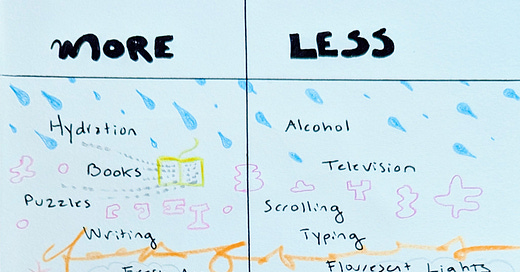 MORE LESS
Hydration Alcohol
Books Television
Puzzles Scrolling
Writing Typing
Flourescent Lights